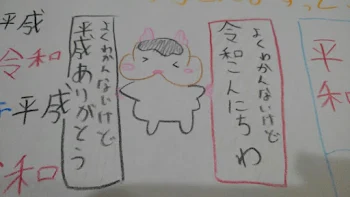 よくわかんないけど
令和こんにちわ
よくわかんないけど
平成ありがとう
平和
平成
令和
平成
和